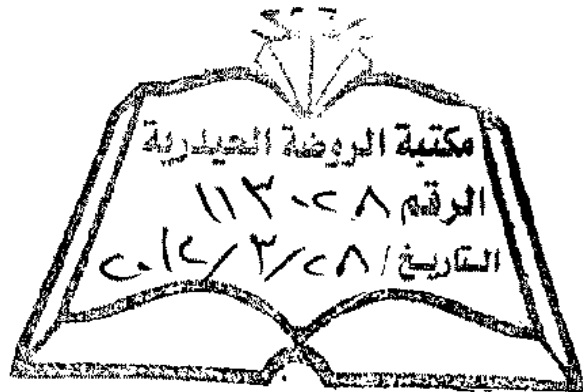 مكتبة الروضة الحيدرية
الرقم ١١٣٠٢٨
التاريخ / ٢٨ / ٣ / ٢٠١٢